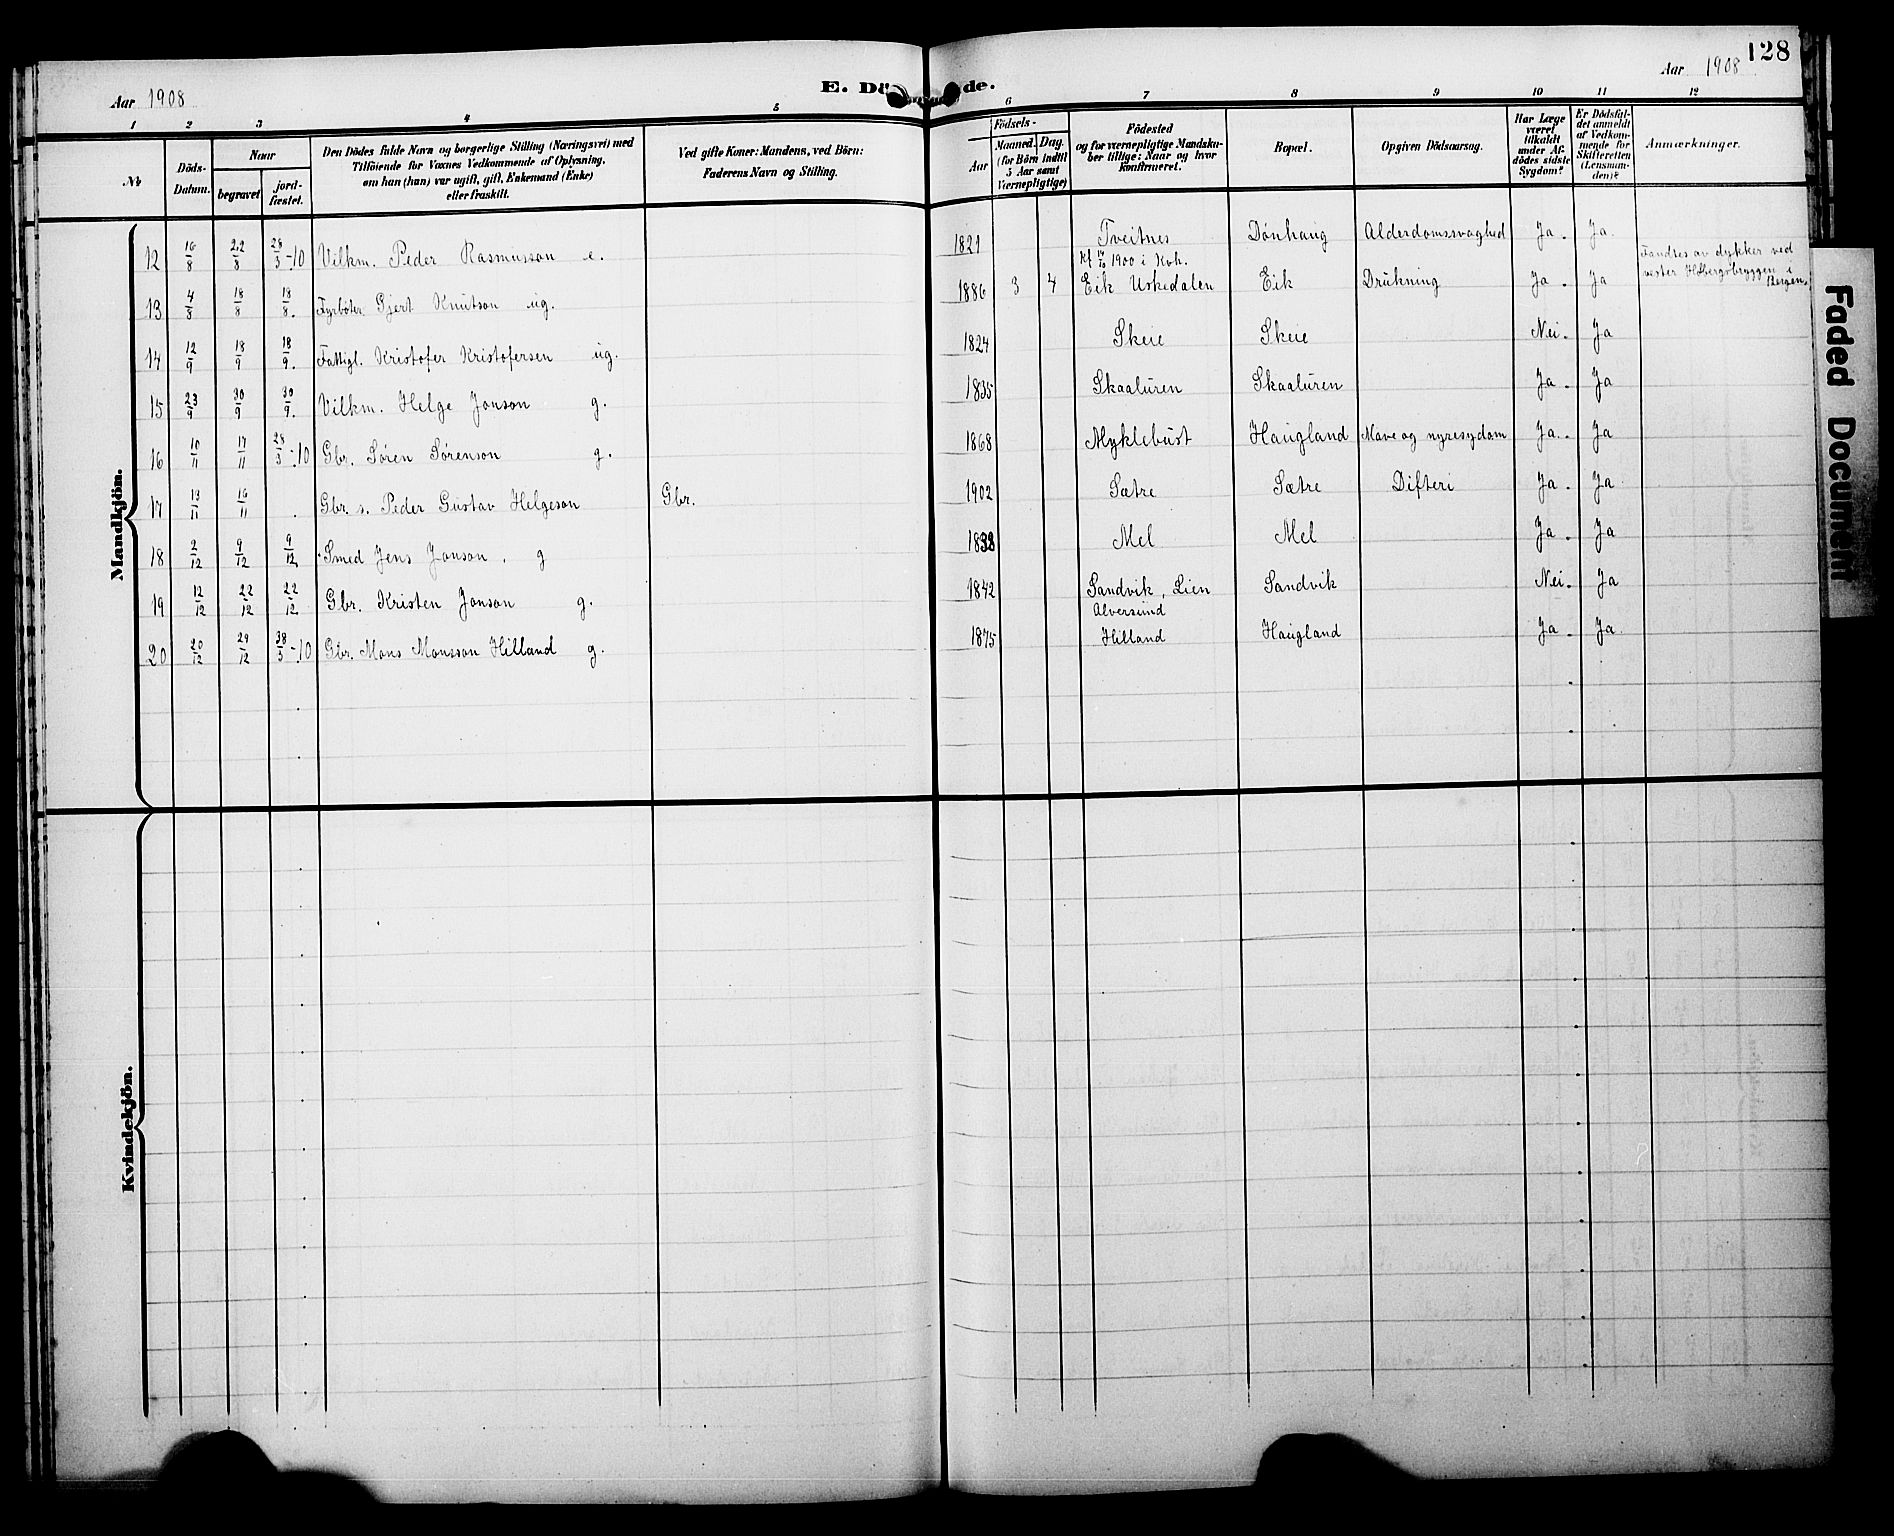 128
Aar 1908
E. Dö de.
Aar 1908
1 2 3 4 5 6 7 8 9 10 11 12
No
Döds-Datum.
Naar
begravet
jord-fæstet.
Den Dödes fulde Navn og borgerlige Stilling (Næringsvei) med
Tilföiende for Voxnes Vedkommende af Oplysning,
om han (hun) var ugift, gift, Enkemand (Enke)
eller fraskilt.
Ved gifte Koner: Mandens, ved Börn:
Faderens Navn og Stilling.
Födsels-
Aar
Maaned. Dag.
(for Börn indtil
5 Aar samt
Værnepligtige)
Födested
og for værnepligtige Mandska-
ber tillige: Naar og hvor
konfirmeret.
Bopæl.
Opgiven Dödsaarsag.
Har Læge
været
tilkaldt
under Af-
dödes sidste
Sygdom?
Er Dödsfal-
det anmeldt
af Vedkom-
mende for
Skifteretten
(Lensman-
den)?
Anmærkninger.
Mandkjön.
12 16/8 22/8 28/3-10 Vilkm. Peder Rasmusson e. 1821 Tveitnes Dönhaug Alderdomssvaghed Ja. Ja.
13 4/8 18/8 18/8. Fyrböter. Gjert Knutson ug. 1886 3 4 Kf 14/10 1900 i Kvh. Eik Uskedalen Eik Drukning Ja. Ja Fandtes av dykker ved
vester Holbergsbryggen i
Bergen.
14 12/9 18/9 18/9. Fattigl. Kristofer Kristofersen ug. 1824 Skeie Skeie Nei. Ja
15 23/9 30/9 30/9. Vilkm. Helge Jonson g. 1835 Skaaluren Skaaluren Ja. Ja
16 10/11 17/11 28/3-10 Gbr. Sören Sörenson g. 1868 Myklebust Haugland Mave og nyresydom Ja. Ja
17 13/11 16/11 Gbr. s. Peder Gustav Helgeson Gbr. 1902 Sætre Sætre Difteri Ja. Ja
18 2/12 9/12 9/12. Smed Jens Jonson. g 1838 Mel Mel Ja. Ja
19 12/12 22/12 22/12. Gbr. Kristen Jonson g. 1842 Sandvik, Lien Sandvik Nei. Ja
20 20/12 29/12 38/3-10 Gbr. Mons Monsson Hilland g. 1875 Alversund Hilland Haugland Ja. Ja
Kvindekjön.
Faded Document